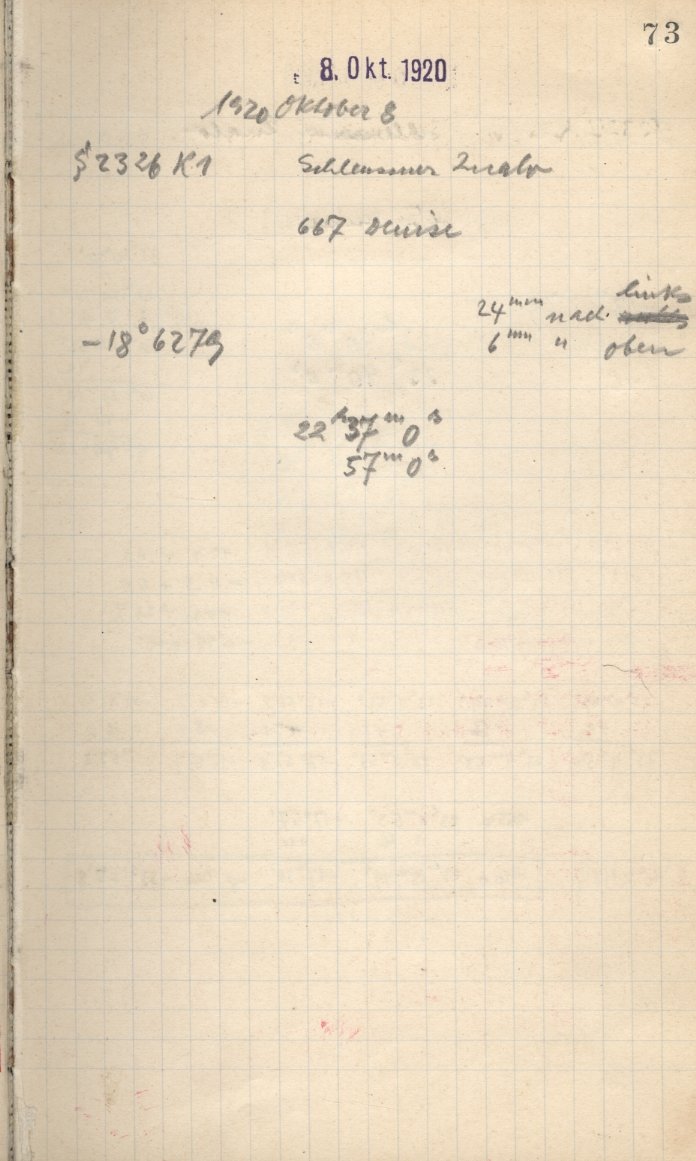 73
8. Okt. 1920
1920 Oktober 8
§ 2326 K1 Schleussner
667 Denise
links
24 mm nach rechts
6 mm " oben
-18° 6279
22 h 37 m 0 s
57 m 0 s